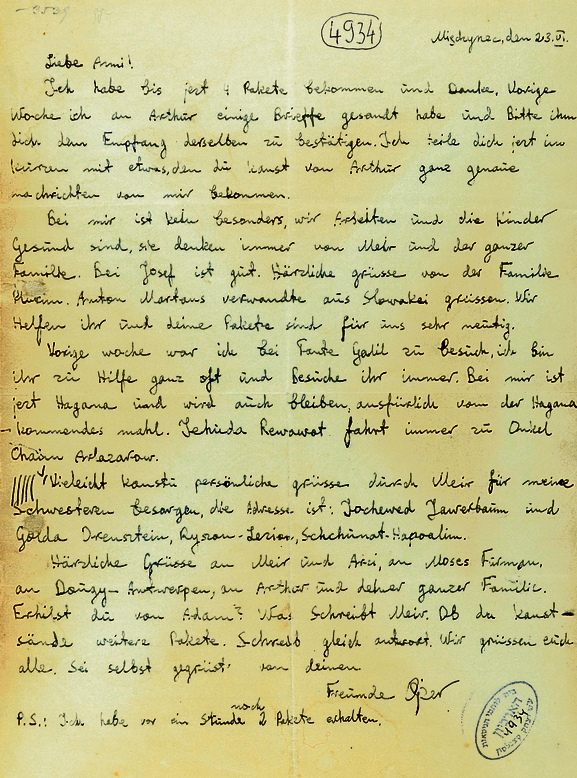 4934
Międzyrzec, den 23.VI.
Liebe Armi!
Ich habe bis jezt 4 Pakete bekommen und Danke. Vorige
Woche ich an Arthur einige Brieffe gesandt habe und Bitte ihm
dich den Empfang derselben zu bestätigen. Ich teile dich jezt im
kurzen mit etwas, den du kanst von Arthur ganz genaue
nachrichten von mir bekommen.
Bei mir ist kein besonders, wir Arbeiten und die kinder
Gesund sind, sie denken immer von Meir und der ganzer
Familie. Bei Josef ist gut. Härzliche grüsse von der Familie
Anton Martans verwandte aus Slowakei grüssen. Wir
Helfen ihr und deine Pakete sind für uns sehr neutig.
Vorige woche war ich bei Tante Galil zu besuch, ich bin
ihr zu Hilfe ganz oft und Besuche ihr immer. Bei mir ist
jezt Hagana und wird auch bleiben, ausfürlich von der Hagana
kommendes mahl. Jehuda Rewawot fahrt immer zu Onkel
Chaim Arlazarow.
Vieleicht kanstu persönliche grüsse durch Meir für meine
Schwesteren besorgen, die Adresse ist: Jochewed Jawerbaum und
Golda Orenstein, Ryszon-Lezion, Schchunat-Hapoalim.
Härzliche Grüsse an Meir und Arzi, an Moses Furman,
an Dougy-Antwerpen, an Arthur und deiner ganzer Familie.
Erhilst du von Adam? Was Schreibt Meir. Ob du kanst –
sände weitere Pakete. Schreib gleich antwort. Wir grüssen euch
alle. Sei selbst gegrüst von deinen
Freunde Oper
P.S.: Ich habe vor ein stunde noch 2 Pakete erhalten.
4934